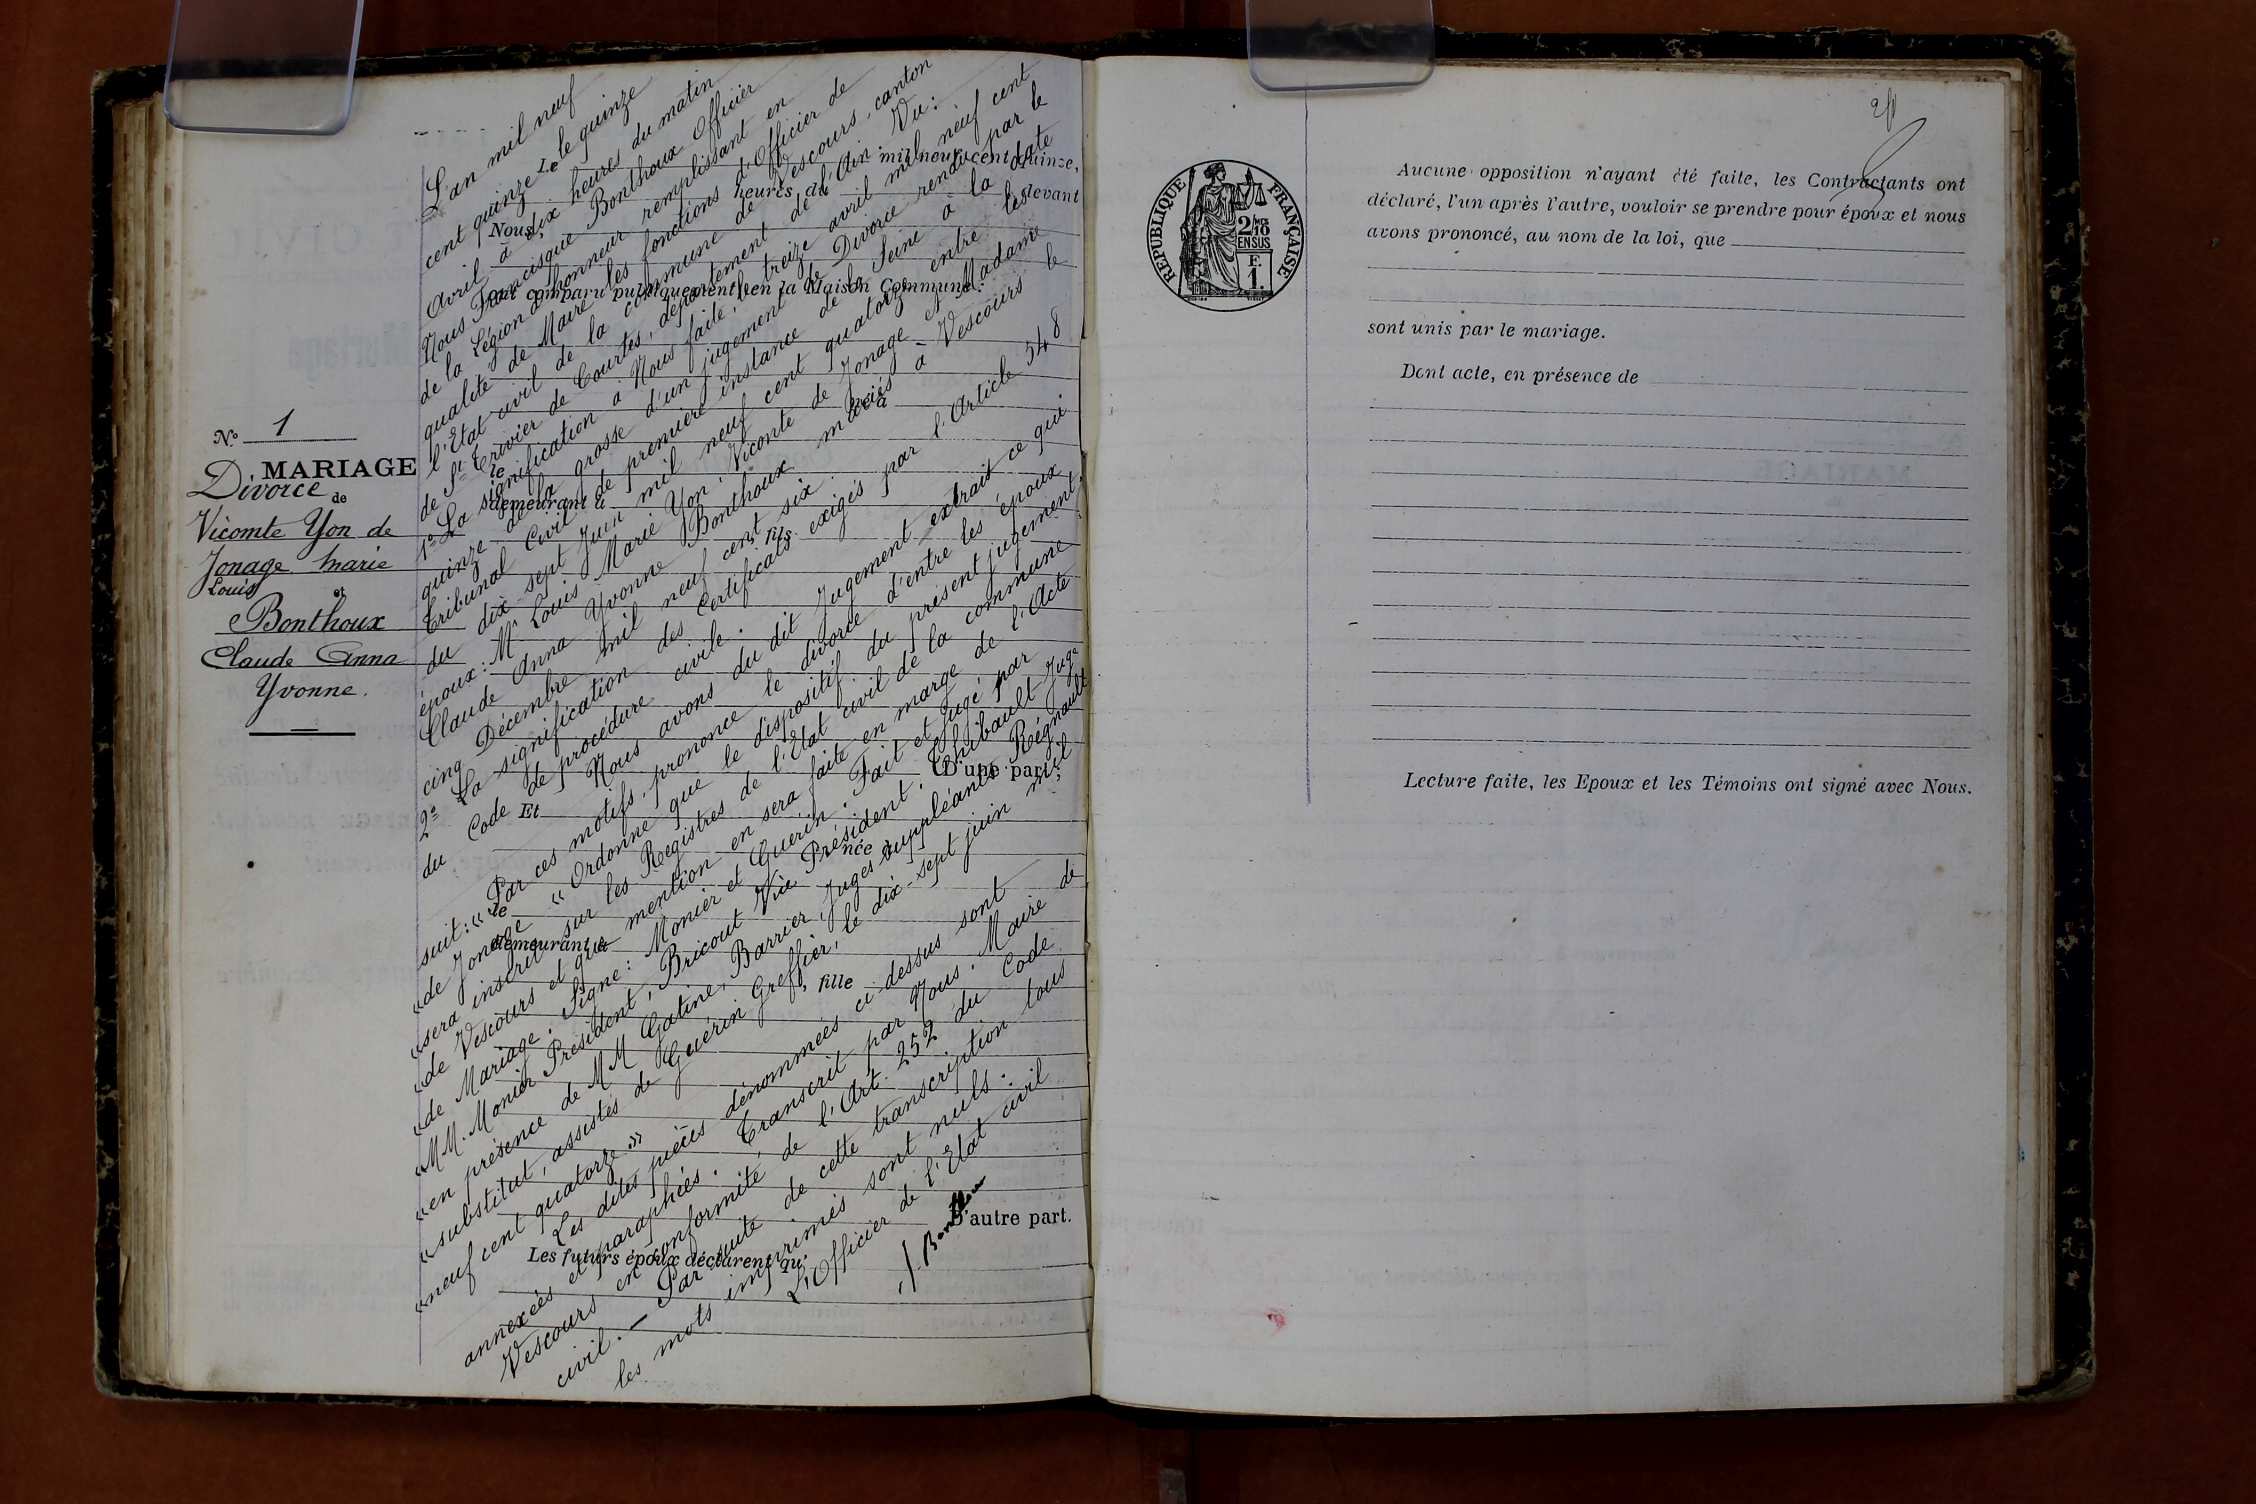 N° 1
MARIAGE
Divorce de
Vicomte Yon de
Jonage Marie
Louis
et
Bonthoux
Claude Anna
Yvonne.
L'an mil neuf
cent quinze Le le quinze
Avril à dix heures du matin
Nous Francisque Bonthoux Officier
de la Légion d'honneur remplissant en
qualité de Maire les fonctions d'Officier de
l'Etat-civil de la commune de Vescours, canton
de St Trivier de Courtes, département de l'Ain. Vu:
1° La signification à Nous faite, le treize avril mil neuf cent
quinze de la grosse d'un jugement de Divorce rendu par le
Tribunal Civil de première instance de la Seine à la date
du dix-sept Juin mil neuf cent quatorze entre les
époux: Mr Louis Marie Yon, Vicomte de Jonage et Madame
Claude Anna Yvonne Bonthoux mariés à Vescours le
cinq Décembre mil neuf cent six.
2° La signification des Certificats exigés par l'Article 548
du Code de procédure civile.
Nous avons du dit Jugement extrait ce qui
suit: « Par ces motifs, prononce le divorce d'entre les époux
« de Jonage « Ordonne que le dispositif du présent jugement
« sera inscrit sur les Registres de l'Etat civil de la commune
« de Vescours et que mention en sera faite en marge de l'Acte
« de Mariage. Signé: Monier et Guérin. Fait et Jugé par
« MM. Monier Président, Bricout Vice Président, Thibault Juge
« en présence de MM Gatine, Barrier, Juges suppléants Régnault
« substitut, assistés de Guérin Greffier, le dix-sept juin mil
« neuf cent quatorze »
Les dites pièces dénommées ci-dessus sont
annexées et paraphées. Transcrit par Nous. Maire de
Vescours en conformité de l'Art. 252 du Code
civil. — Par suite de cette transcription tous
les mots imprimés sont nuls.
L'Officier de l'Etat civil
Bonthoux
mil neuf cent quinze,
heures du
devant
Nous,
ont comparu publiquement en la Maison Commune:
né à
le
demeurant à
fils
D'une part;
Et
née à
le
demeurant à
, fille
D'autre part.
Les futurs époux déclarent qu'
REPUBLIQUE FRANÇAISE
2/10
EN SUS
F.
1.
Aucune opposition n'ayant été faite, les Contractants ont
déclaré, l'un après l'autre, vouloir se prendre pour époux et nous
avons prononcé, au nom de la loi, que
sont unis par le mariage.
Dont acte, en présence de
Lecture faite, les Epoux et les Témoins ont signé avec Nous.